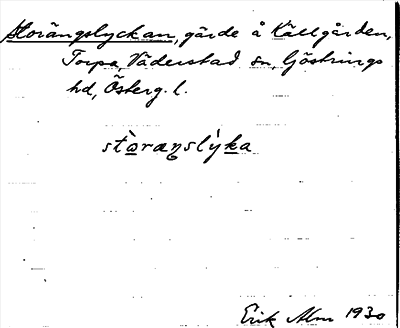 Storängslyckan, gärde å Källgården,
Torpa, Väderstad sn, Göstrings
hd, Österg. l.
stòranslỳka
Erik Alm 1930